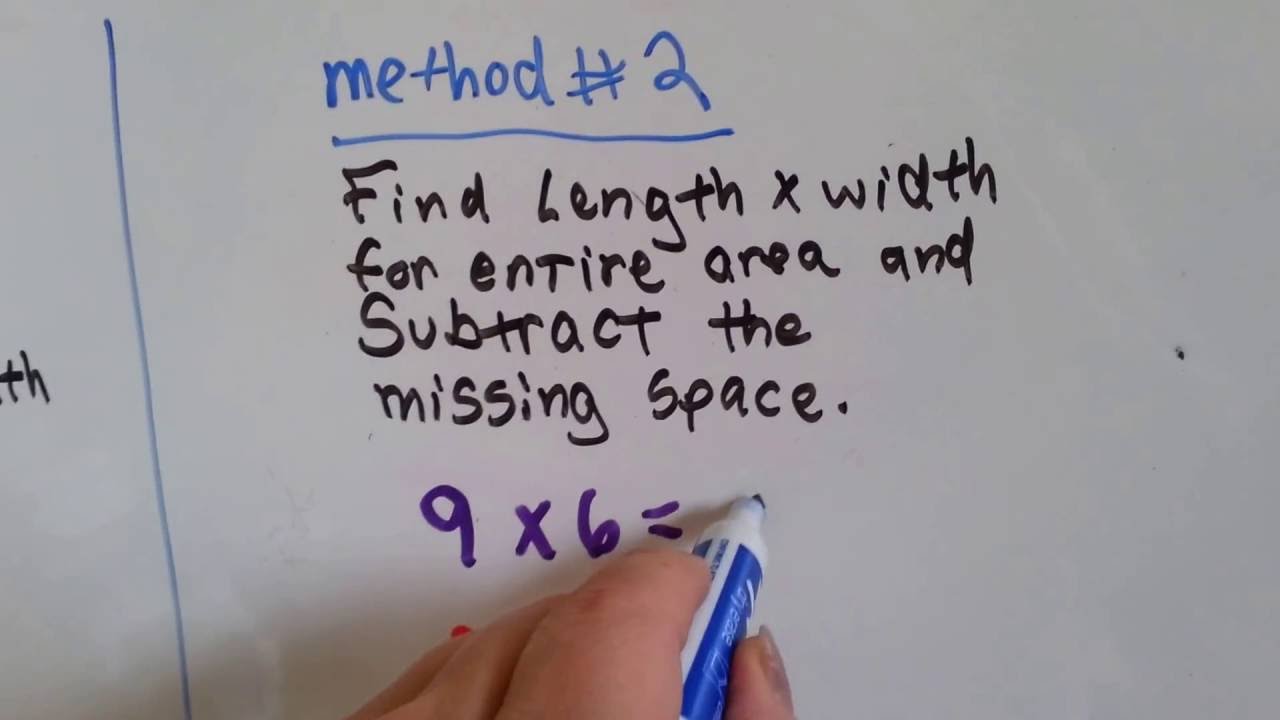 method # 2
Find Length x width
for entire area and
Subtract the
missing space.
th
9 x 6 =